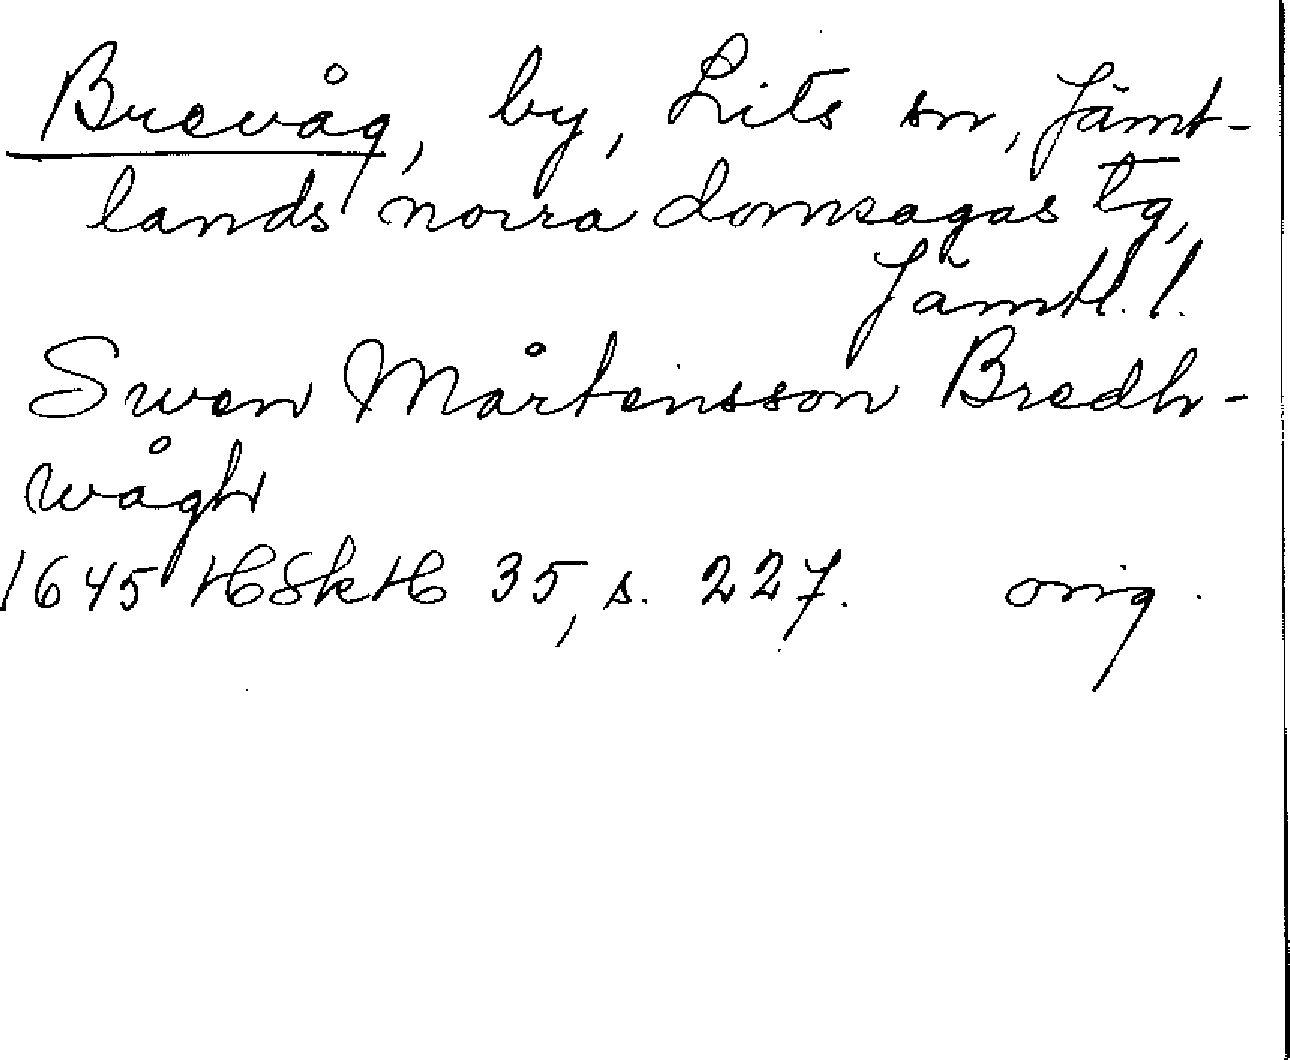 Brevåg, by, Lits sn, Jämt-
lands norra domsagas tg,
Jämtl. l.
Swen Mårtensson Bredh-
wågh
1645 HSkH 35, s. 227. orig.